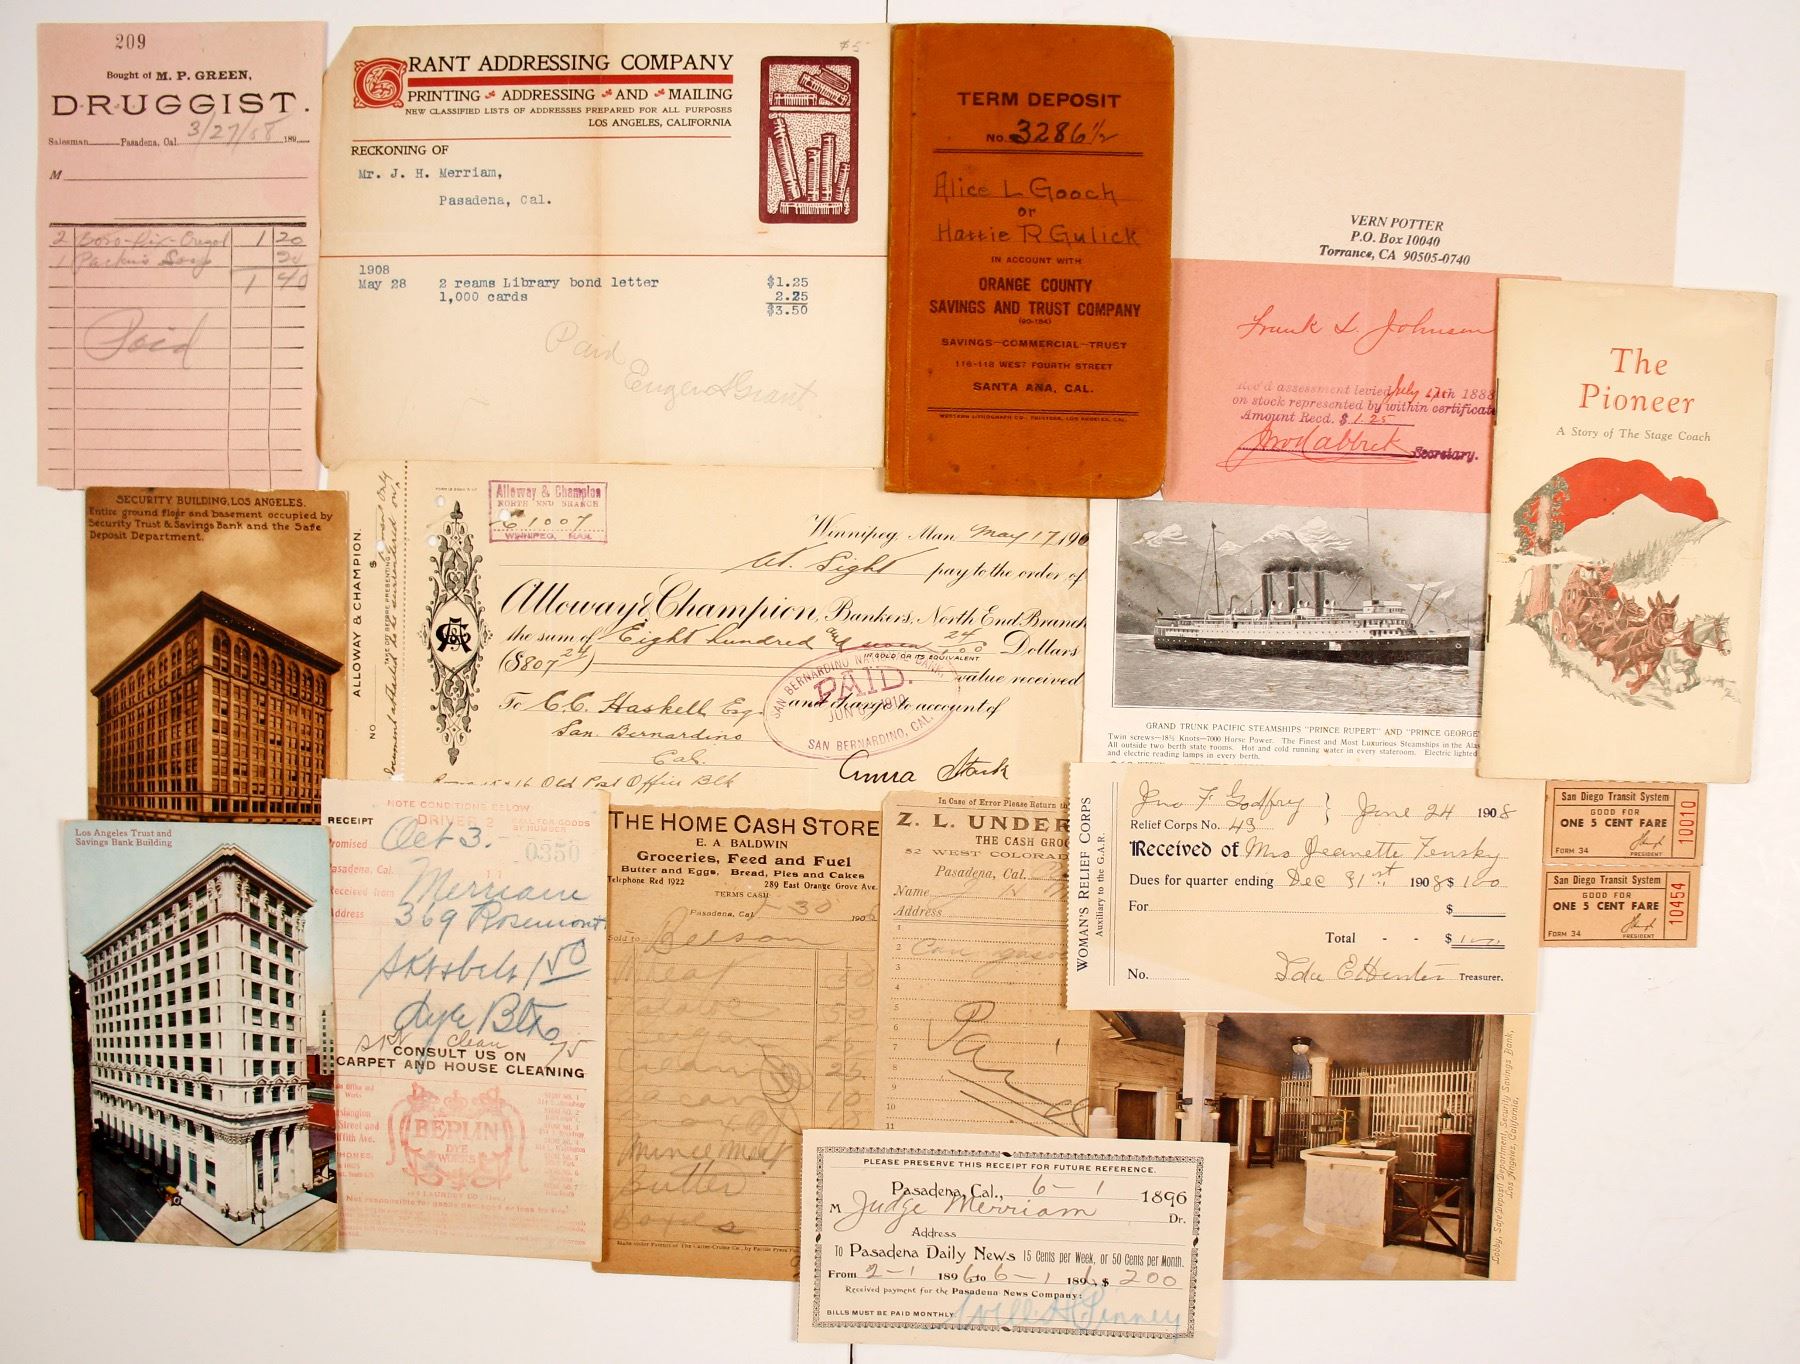 209
Bought of M. P. GREEN,
DRUGGIST.
Salesman Pasadena, Cal. 3/27/58 189
M
2 Boro-Pix-Oregol 1 20
1 Packers Soap 20
1 40
Paid
$5
GRANT ADDRESSING COMPANY
PRINTING ADDRESSING AND MAILING
NEW CLASSIFIED LISTS OF ADDRESSES PREPARED FOR ALL PURPOSES
LOS ANGELES, CALIFORNIA
RECKONING OF
Mr. J. H. Merriam,
Pasadena, Cal.
1908
May 28 2 reams Library bond letter $1.25
1,000 cards 2.25
$3.50
Paid
Eugene Grant
TERM DEPOSIT
No. 3286 1/2
Alice L Gooch
or
Hattie R Gulick
IN ACCOUNT WITH
ORANGE COUNTY
SAVINGS AND TRUST COMPANY
(90-184)
SAVINGS-COMMERCIAL-TRUST
116-118 WEST FOURTH STREET
SANTA ANA, CAL.
WESTERN LITHOGRAPH CO. PRINTERS, LOS ANGELES, CAL.
VERN POTTER
P.O. Box 10040
Torrance, CA 90505-0740
Frank L. Johnson
Rec'd assessment levied July 17th 1888
on stock represented by within certificate
Amount Recd. $ 1.25
Secretary.
The
Pioneer
A Story of The Stage Coach
SECURITY BUILDING, LOS ANGELES.
Entire ground floor and basement occupied by
Security Trust & Savings Bank and the Safe
Deposit Department.
ALLOWAY & CHAMPION.
NO $
Alloway & Champion
NORTH END BRANCH
61007
WINNIPEG, MAN.
Winnipeg, Man. May 17, 190
At Sight pay to the order of
Alloway & Champion, Bankers, North End Branch
the sum of Eight hundred and seven 24/00 Dollars
IN GOLD OR ITS EQUIVALENT
($807 24) value received
To C. C. Haskell Esq. and charge to account of
San Bernardino
Cal.
Rooms 15 & 16 Old Post Office Blk
Anna Stark
SAN BERNARDINO NATIONAL BANK
PAID.
JUN 1910
SAN BERNARDINO, CAL.
GRAND TRUNK PACIFIC STEAMSHIPS "PRINCE RUPERT" AND "PRINCE GEORGE
Twin screws—18½ Knots—7000 Horse Power. The Finest and Most Luxurious Steamships in the Alas
All outside two berth state rooms. Hot and cold running water in every stateroom. Electric lighted
and electric reading lamps in every berth.
San Diego Transit System
GOOD FOR
ONE 5 CENT FARE
FORM 34 PRESIDENT
10010
San Diego Transit System
GOOD FOR
ONE 5 CENT FARE
FORM 34 PRESIDENT
10454
Los Angeles Trust and
Savings Bank Building
NOTE CONDITIONS BELOW
RECEIPT DRIVER 2 CALL FOR GOODS
BY NUMBER
Promised Oct 3. 0350
Pasadena, Cal. 11
Received from Merriam
Address 369 Rosemont
Skt & belt 1 50
dye Blk
Skt clean 75
CONSULT US ON
CARPET AND HOUSE CLEANING
BERLIN
DYE
WORKS
Not responsible for goods damaged or loss by fire.
THE HOME CASH STORE
E. A. BALDWIN
Groceries, Feed and Fuel
Butter and Eggs, Bread, Pies and Cakes
Telephone Red 1922 289 East Orange Grove Ave.
TERMS CASH
Pasadena, Cal. 30 1906
Sold to
Cream 25
10
Mince Meat
Butter
In Case of Error Please Return th
Z. L. UNDER
THE CASH GRO
52 WEST COLORAD
Pasadena, Cal.
Name
Address
1
2
3
4
5
6
7
8
9
10
11
Can gaso
Paid
WOMAN'S RELIEF CORPS
Auxiliary to the G.A.R.
Jno F Godfry June 24 1908
Relief Corps No. 43
Received of Mrs Jeanette Fensky
Dues for quarter ending Dec 31st 1908 $ 1 00
For $
Total - - $ 1 00
No. Ida E Hunter Treasurer.
Lobby, Safe Deposit Department, Security Savings Bank,
Los Angeles, California.
PLEASE PRESERVE THIS RECEIPT FOR FUTURE REFERENCE.
Pasadena, Cal., 6-1 1896
M Judge Merriam Dr.
Address
To Pasadena Daily News 15 Cents per Week, or 50 Cents per Month.
From 2-1 1896 to 6-1 1896, $ 2 00
Received payment for the Pasadena News Company:
BILLS MUST BE PAID MONTHLY.